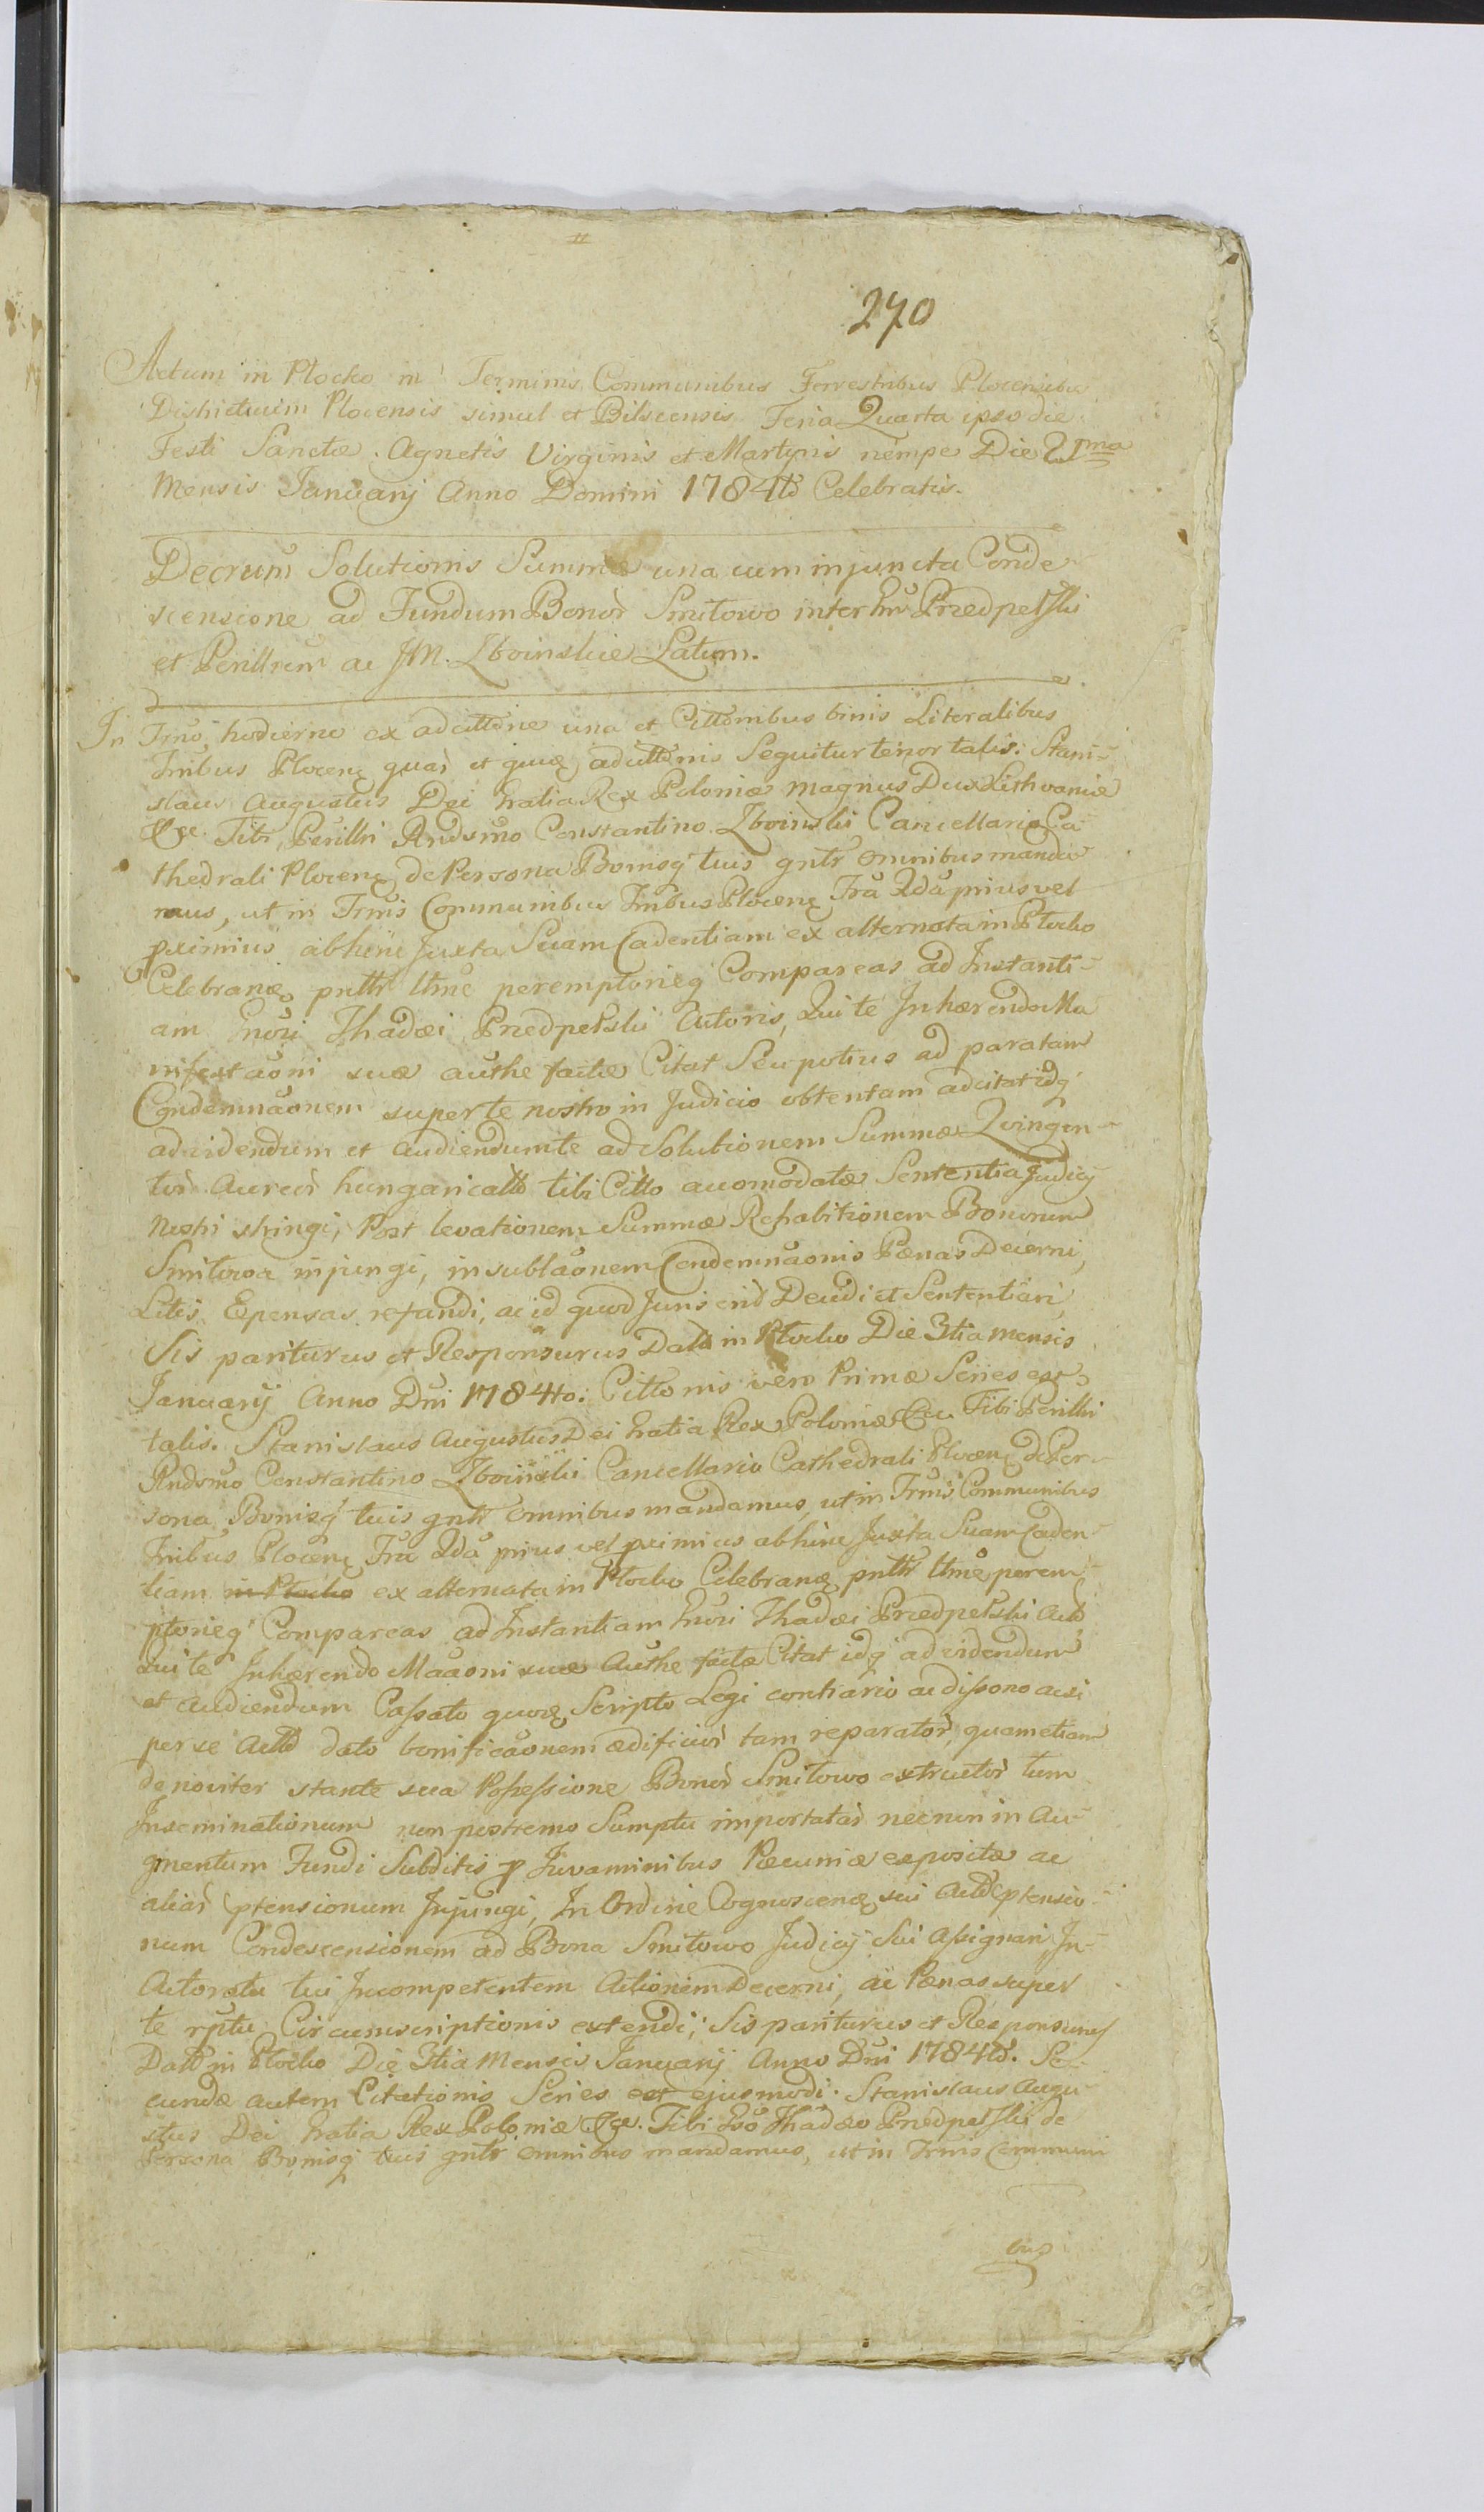 270
Actum in Plocko in Terminis Communibus Terrestribus Plocensibus
Districtuum Plocensis simul et Bilscensis Feria Quarta ipso die
Festi Sanctæ Agnetis Virginis et Martyris nempe Die 21ma
Mensis Januarij Anno Domini 1784to Celebratis.
Decrum Solutionis Summæ una cum injuncta Conde
scensione ad Fundum Bonor Smitowo inter Przedpełski
et Perillrem ac JM. Zboinskie Latum.
In Trno hodierno ex adcittone una et Cittonibus binis Literalibus
Trribus Plocen quar et quæ adcittonis Sequitur tenor talis: Stani-
slaus Augustus Dei Gratia Rex Poloniæ Magnus Dux Lithvaniæ
&ce. Tibi Perillri Rndsmo Constantino Zboinski Cancellario Ca
thedrali Plocen de Persona Bonisq tuis gntr omnibus manda
mus, ut in Trnis Communibus Trribus Plocen Fra 2da prius vel
proximius abhinc Juxta Suam Cadentiam ex alternata in Plocko
Celebran pnttr ltme peremptorieq Compareas ad Instanti-
am Gnosi Thadæi Przedpełski Actoris, Qui te Inhærendo Ma
nifestaoni suæ authe factæ Citat Seu potius ad paratam
Condemnaonem super te nostro in Judicio obtentam adcitat idq
ad videndum et audiendum te ad Solutionem Summæ Qvingen-
tor Aureor hungaricall tibi Citto accomodatæ Sententia Judicij
Nostri stringi, Post levationem Summæ Rehabitionem Bonorum
Smitowa injungi, in sublaonem Condemnaonis Pænas Decerni,
Litis Expensas refundi, ac id quod Juris erit Decidi et Sententiari
Sis pariturus et Responsurus Datt in Plocko Die 3tia mensis
Januarij Anno Dni 1784to: Cittonis vero Primæ Series est
talis. Stanislaus Augustus Dei Gratia Rex Poloniæ &ce. Tibi Perillri
Rndsmo Constantino Zboinski Cancellario Cathedrali Plocen de Per-
sona Bonisq tuis gntr omnibus mandamus, ut in Trnis Communibus
Trribus Plocen Fra 2da prius vel proximius abhinc Juxta Suam Caden-
tiam in Plocko ex alternata in Plocko Celebran pnttr ltme perem-
ptorieq Compareas ad Instantiam Gnosi Thadæi Przedpełski Act
Qui te Inhærendo Maaoni suæ Authe factæ Citat idq ad videndum
et audiendum Cassato quove Scripto Legi contrario ac dissono acsi
per se Act dato bonificaonem ædificior tam reparator, quam etiam
de noviter stante sua Possessione Bonor Smitowo extructor tum
Inseminationum non postremo Sumptu importatar necnon in Au-
gmentum Fundi Subditis pro Juvaminibus Pecuniæ expositæ ac
aliar Ptensionum Injungi, In Ordine Cognoscen sui Act Ptensio-
num Condescensionem ad Bona Smitowo Judicij Sui Assignari, In-
Actoratu tui Incompetentem Actionem Decerni, ac Pænas super
te rptu Circumscriptionis extendi; Sis pariturus et Responsurus
Datt in Plocko Die 3tia Mensis Januarij Anno Dni 1784to. Se-
cundæ autem Citationis Series est ejusmodi. Stanislaus Augu-
stus Dei Gratia Rex Poloniæ &ce. Tibi Gso Thadæo Przedpełski de
Persona Bonisq tuis gntr omnibus mandamus, ut in Trnis Communi
bus